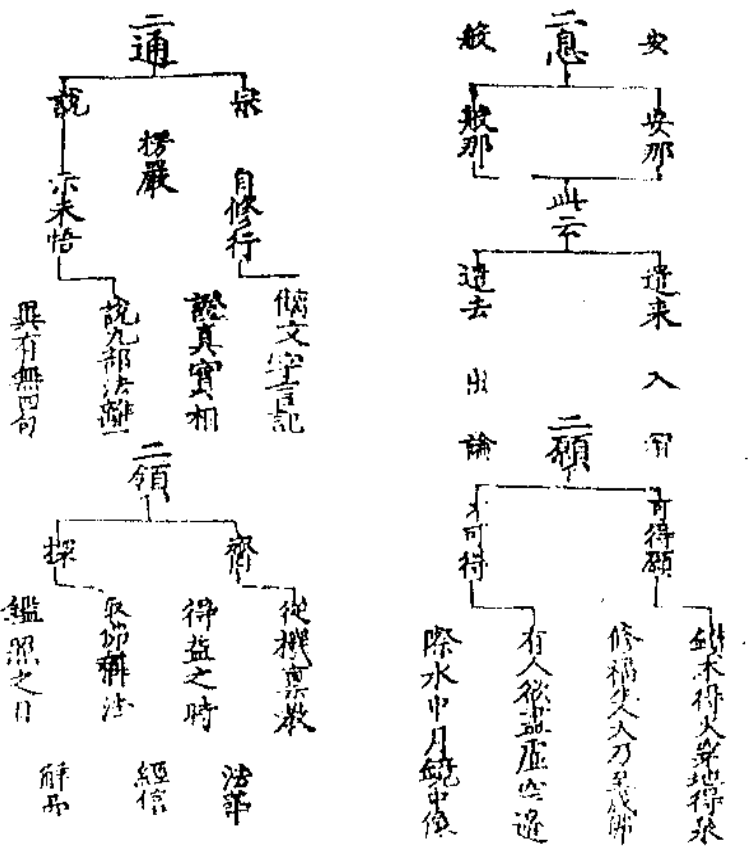 二息
安
般
安那
般那
此云
遣来
遣去
入
出
論
二願
可得願
不可得
鑚木得火穿地得泉
修福生人天乃至成佛
有人欲盡虛空邊
際水中月鏡中像
二通
宗
說
楞嚴
自修行
示未悟
文字言記
證真實相
說九部法離
異有無四句
二領
齊
探
從機稟教
得益之時
取佛耕法
鑑照之日
法華
經信
解品